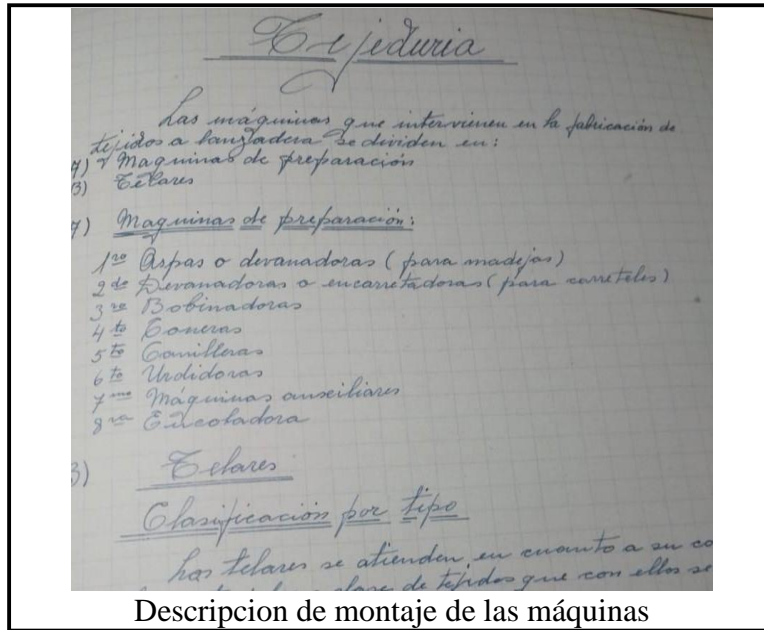 Tejeduria
Las máquinas que intervienen en la fabricación de
tejidos a lanzadera se dividen en:
A) Maquinas de preparación
B) Telares
A) Maquinas de preparación:
1ro Aspas o devanadoras (para madejas)
2do Devanadoras o encarretadoras (para carreteles)
3ro Bobinadoras
4to Coneras
5to Canilleras
6to Urdidoras
7mo Máquinas auxiliares
8va Encoladora
B) Telares
Clasificación por tipo
Los telares se atienden en cuanto a su co
clase de tejidos que con ellos se
Descripcion de montaje de las máquinas